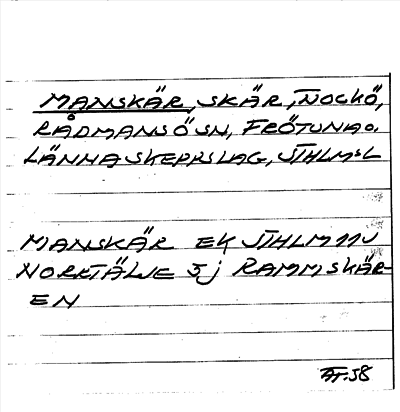 MANSKÄR, SKÄR, I NOCKÖ,
RÅDMANSÖ SN, FRÖTUNA O.
LÄNNA SKEPPSLAG, STHLMS L
MANSKÄR EK STHLM 11J
NORRTÄLJE 5j RAMMSKÄR-
EN